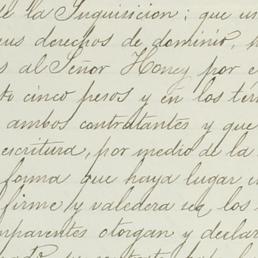 de la Inquisicion; que un
sus derechos de dominio,
al Señor Honey por
cinco pesos y en los
ambos contratantes y que
escritura, por medio de la
forma que haya lugar
firme y valedera sea los
otorgan y